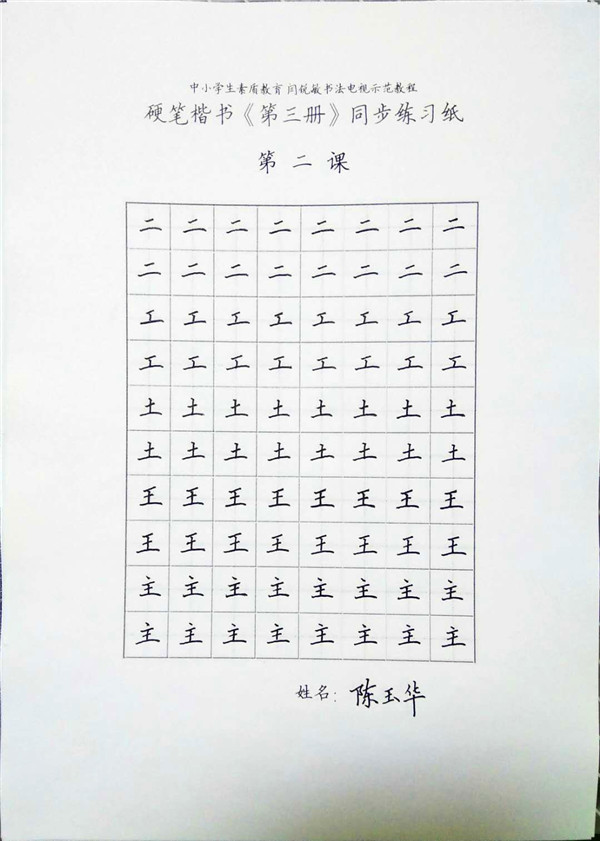 中小学生素质教育 闫锐敏书法电视示范教程
硬笔楷书《第三册》同步练习纸
第 二 课
二 二 二 二 二 二 二 二
二 二 二 二 二 二 二 二
工 工 工 工 工 工 工 工
工 工 工 工 工 工 工 工
土 土 土 土 土 土 土 土
土 土 土 土 土 土 土 土
王 王 王 王 王 王 王 王
王 王 王 王 王 王 王 王
主 主 主 主 主 主 主 主
主 主 主 主 主 主 主 主
姓名：陈玉华